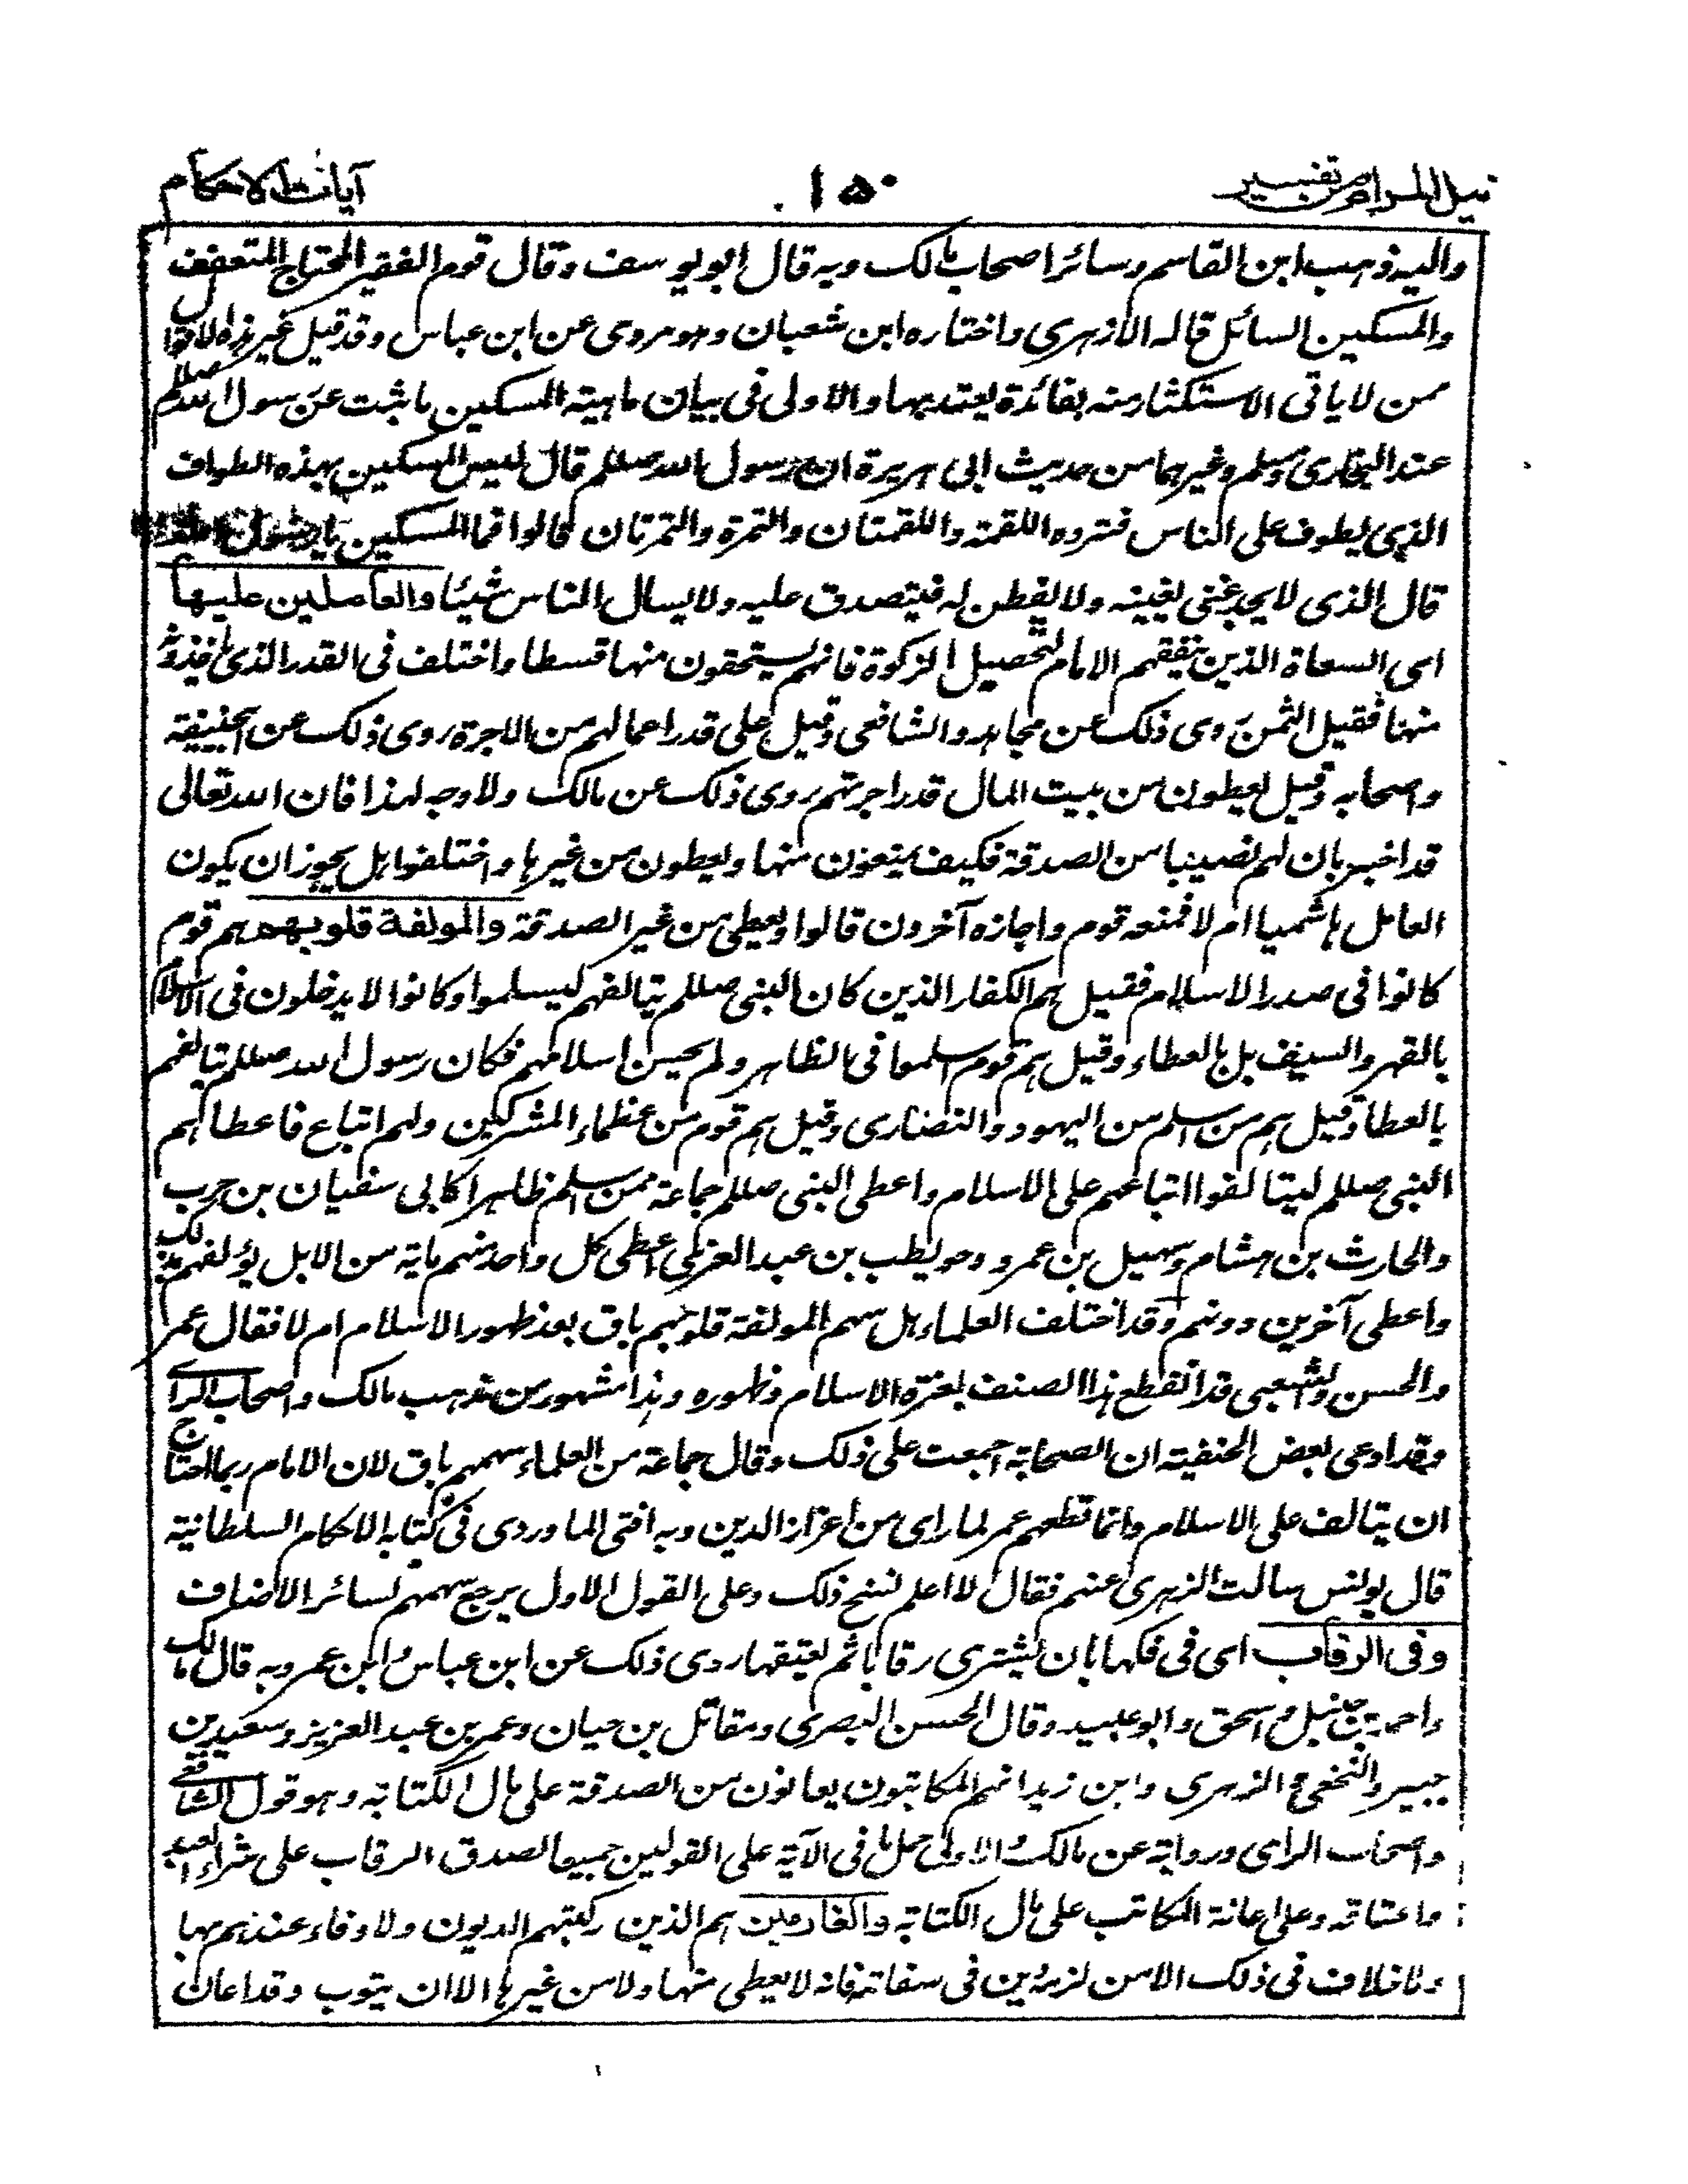 نيل المرام من تفسير
١٥٠
آيات الاحكام
واليه ذهب ابن القاسم وسائر اصحاب مالك وبه قال ابو يوسف وقال قوم الفقير المحتاج المتعفف
والمسكين السائل قاله الازهري واختاره ابن شعبان وهو مروى عن ابن عباس وقد قيل غير هذه الاقوال
ممن لا ياتى الاستكثار منه بفائدة يعتد بها والاولى فى بيان ماهية المسكين ما ثبت عن رسول الله صللم
عند البخارى ومسلم وغيرهما من حديث ابى هريرة ان رسول الله صللم قال ليس المسكين بهذه الطواف
الذى يطوف على الناس فتروه اللقمة واللقمتان والتمرة والتمرتان قالوا فما المسكين يا رسول الله
قال الذى لا يجد غنى يغينه ولا يفطن له فيتصدق عليه ولا يسال الناس شيئا والعاملين عليها
اى السعاة الذين يتفقهم الامام لتحصيل الزكوة فانهم يستحقون منها قسطا واختلف فى القدر الذى ياخذونه
منها فقيل الثمن روى ذلك عن مجاهد والشافعى وقيل على قدر اعمالهم من الاجرة روى ذلك عن ابيحنيفة
واصحابه وقيل يعطون من بيت المال قدر اجرتهم روى ذلك عن مالك ولا وجه لهذا فان الله تعالى
قد اخبر بان لهم نصيبا من الصدقة فكيف يمنعون منها ويعطون من غيرها واختلفوا هل يجوز ان يكون
العامل هاشميا ام لا فمنعه قوم واجازه آخرون قالوا ويعطى من غير الصدقة والمولفة قلوبهم هم قوم
كانوا فى صدر الاسلام فقيل هم الكفار الذين كان النبى صللم يتالفهم ليسلموا وكانوا لا يدخلون فى الاسلام
بالقهر والسيف بل بالعطاء وقيل هم قوم اسلموا فى الظاهر ولم يحسن اسلامهم فكان رسول الله صللم يتالفهم
بالعطا وقيل هم من اسلم من اليهود والنصارى وقيل هم قوم من عظماء المشركين ولهم اتباع فاعطاهم
النبى صللم ليتالفوا اتباعهم على الاسلام واعطى النبى صللم جماعة ممن اسلم ظاهرا كابى سفيان بن حرب
والحارث بن هشام وسهيل بن عمرو وحويطب بن عبد العزى اعطى كل واحد منهم ماية من الابل يؤلفهم بذلك
واعطى آخرين دونهم وقد اختلف العلماء هل سهم المولفة قلوبهم باق بعد ظهور الاسلام ام لا فقال عمر
والحسن والشعبى قد انقطع هذا الصنف بعزة الاسلام وظهوره وهذا مشهور من مذهب مالك واصحاب الراى
وقد ادعى بعض الحنفية ان الصحابة اجمعت على ذلك وقال جماعة من العلماء سهمهم باق لان الامام ربما احتاج
ان يتالف على الاسلام وانما قطعهم عمر لما راى من اعزاز الدين وبه افتى الماوردى فى كتابه الاحكام السلطانية
قال يونس سالت الزهرى عنهم فقال لا اعلم نسخ ذلك وعلى القول الاول يرجع سهمهم لسائر الاصناف
وفى الرقاب اى فى فكها بان يشترى رقابا ثم يعتقها روى ذلك عن ابن عباس وابن عمر وبه قال مالك
واحمد بن حنبل واسحق وابو عبيد وقال الحسن البصرى ومقاتل بن حيان وعمر بن عبد العزيز وسعيد بن
جبير والنخعى والزهرى وابن زيد انهم المكاتبون يعانون من الصدقة على مال الكتابة وهو قول الشافعى
واصحاب الراى ورواية عن مالك والاولى حمل ما فى الآية على القولين جميعا لصدق الرقاب على شراء العبد
واعتاقه وعلى اعانة المكاتب على مال الكتابة والغارمين هم الذين ركبتهم الديون ولا وفاء عندهم بها
ولا خلاف فى ذلك الا من لزمه دين فى سفاهة فانه لا يعطى منها ولا من غيرها الا ان يتوب وقد اعان